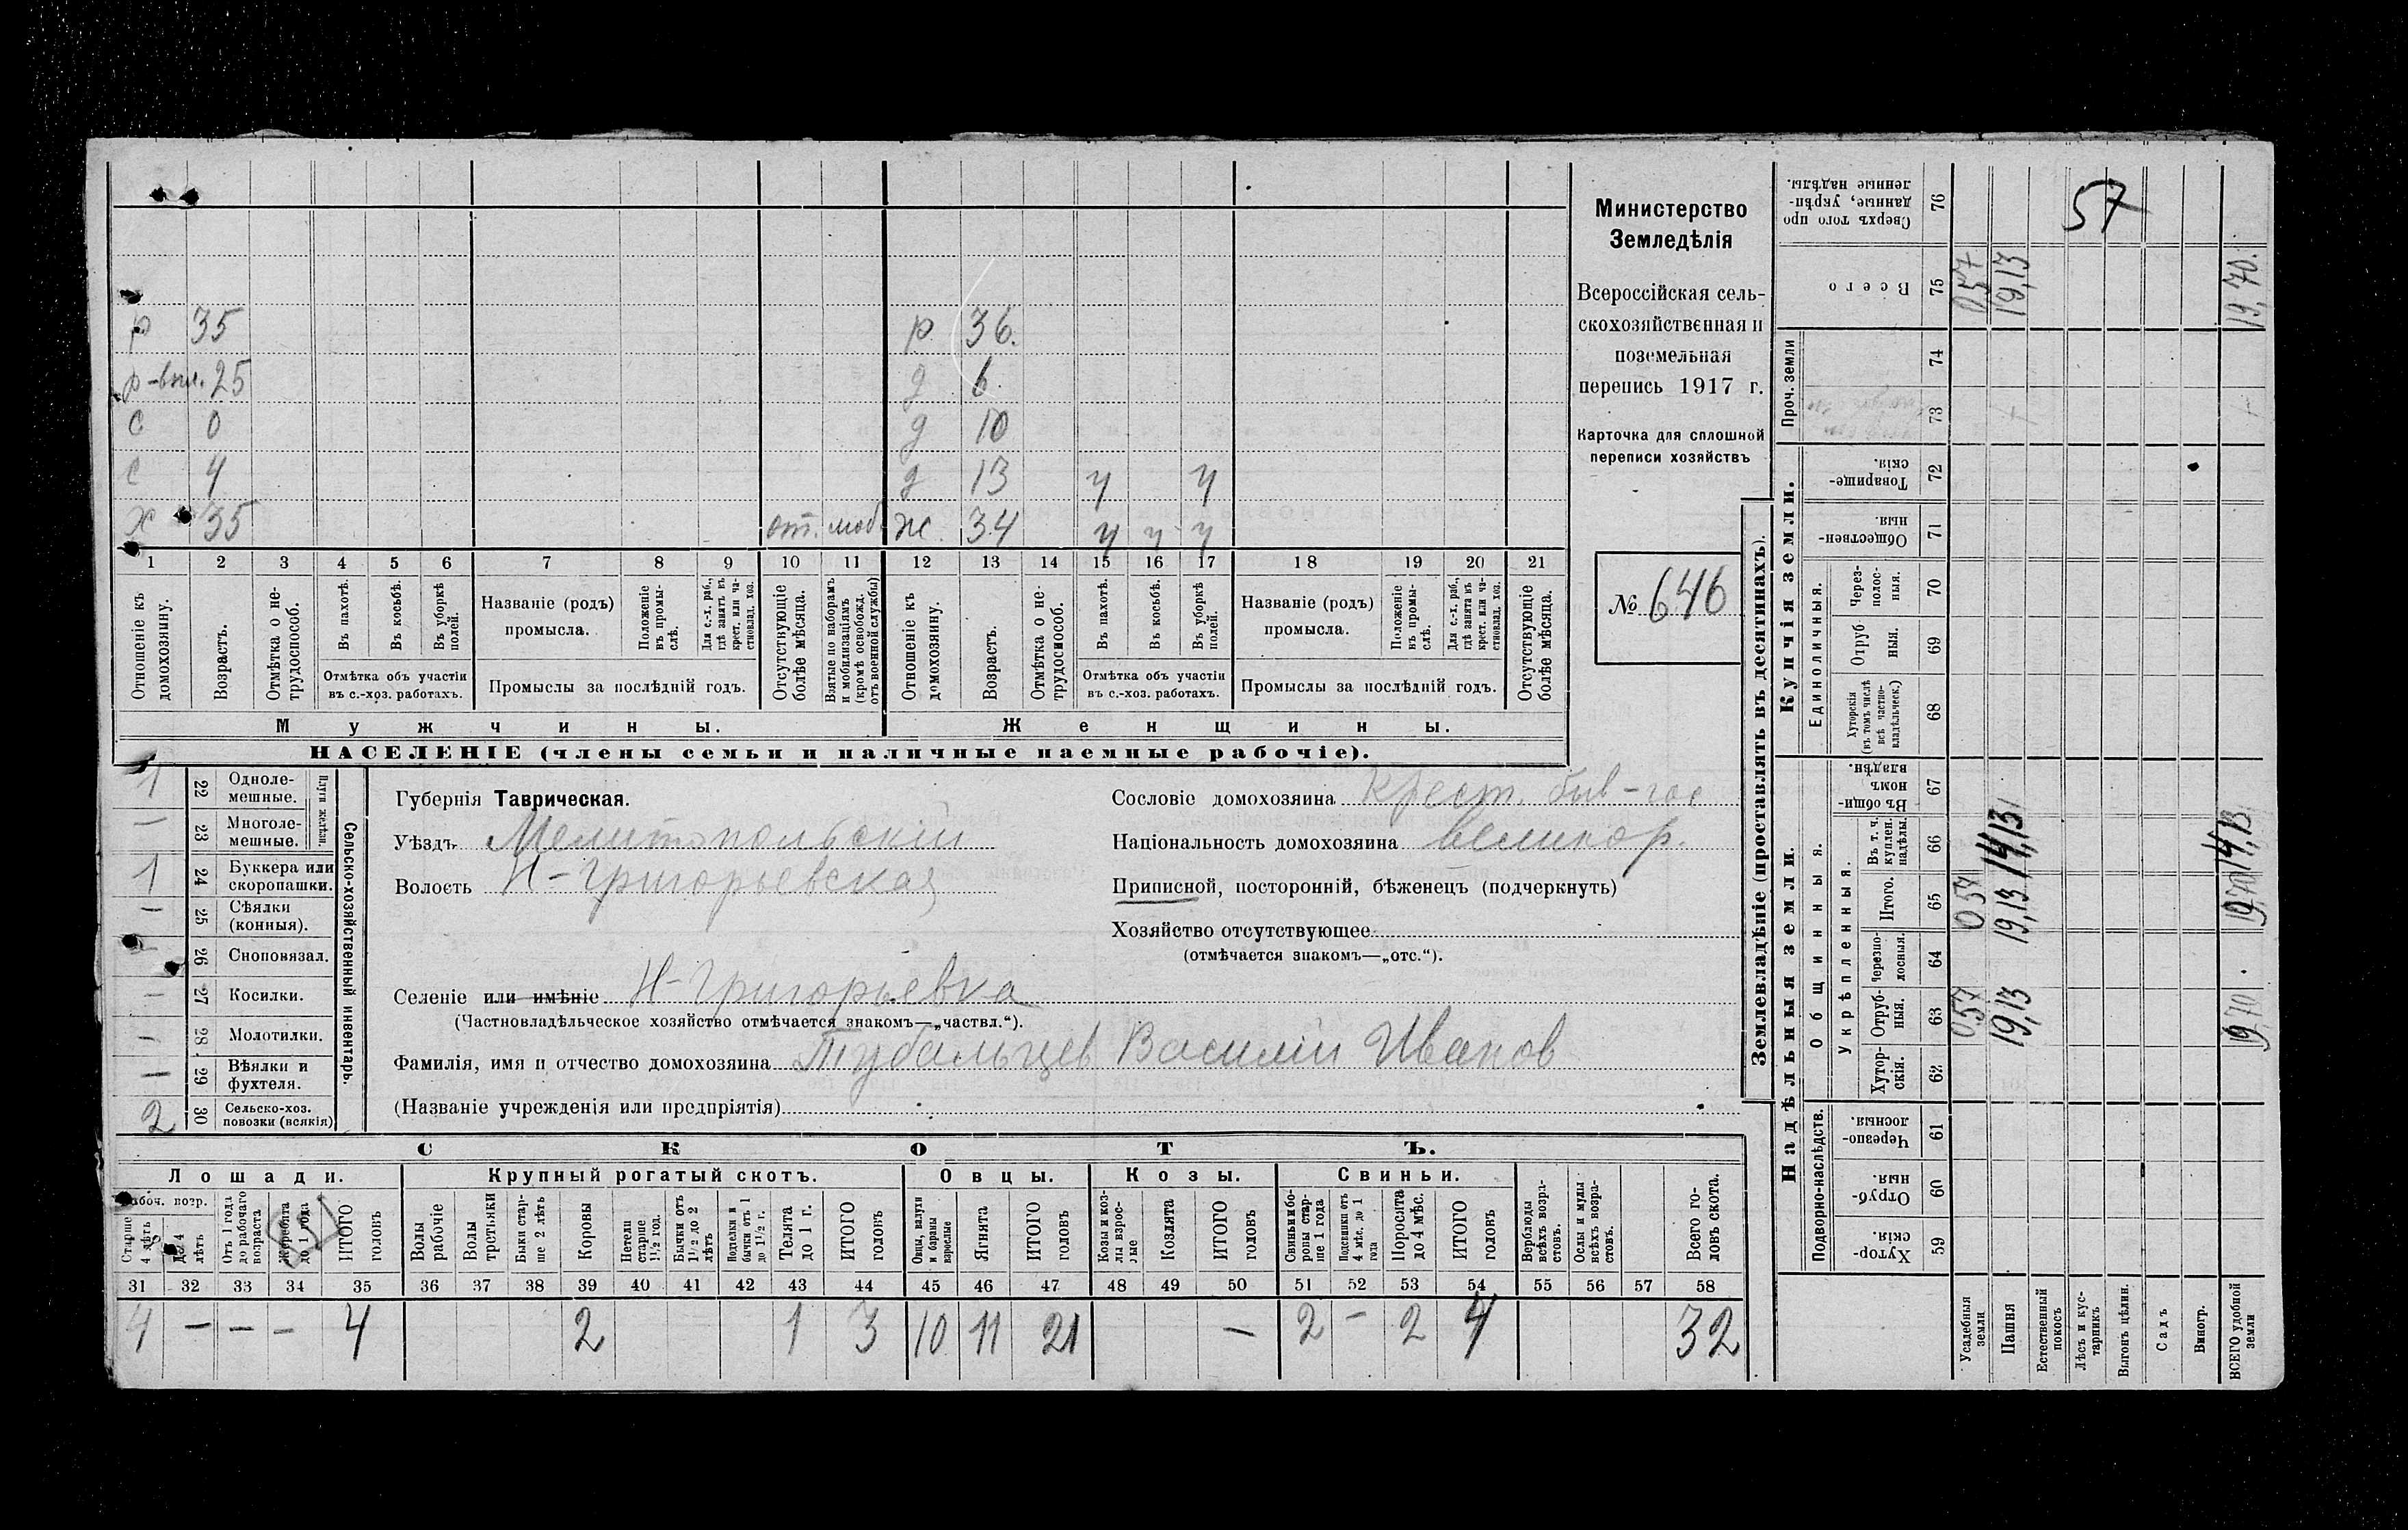 р 35 р 36.
р-впл. 25 д 6.
с 0 д 10
с 4 д 13 ч ч
х 35 от. моб ж. 34 ч ч ч
1 2 3 4 5 6 7 8 9 10 11 12 13 14 15 16 17 18 19 20 21
Отношеніе къ домохозяину.
Возрастъ.
Отмѣтка о не-трудоспособ.
Въ пахотѣ.
Въ косьбѣ.
Въ уборкѣ полей.
Отмѣтка объ участіи
въ с.-хоз. работахъ.
Названіе (родъ)
промысла.
Положеніе въ промы-слѣ.
Для с.-х. раб., гдѣ занятъ въ крест. или ча-стновлад. хоз.
Промыслы за послѣдній годъ.
Отсутствующіе болѣе мѣсяца.
Взятые по наборамъ и мобилизаціямъ (кромѣ освобожд. отъ военной службы)
Отношеніе къ домохозяину.
Возрастъ.
Отмѣтка о не-трудоспособ.
Въ пахотѣ.
Въ косьбѣ.
Въ уборкѣ полей.
Отмѣтка объ участіи
въ с.-хоз. работахъ.
Названіе (родъ)
промысла.
Положеніе въ промы-слѣ.
Для с.-х. раб., гдѣ занята въ крест. или ча-стновлад. хоз.
Промыслы за послѣдній годъ.
Отсутствующіе болѣе мѣсяца.
Мужчины.
Женщины.
НАСЕЛЕНІЕ (члены семьи и наличные наемные рабочіе).
Министерство
Земледѣлія
Всероссійская сель-
скохозяйственная и
поземельная
перепись 1917 г.
Карточка для сплошной
переписи хозяйствъ
№ 646
1 22 Одноле-мешные.
— 23 Многоле-мешные.
Плуги желѣзн.
1 24 Буккера или скоропашки.
— 25 Сѣялки (конныя).
— 26 Сноповязал.
— 27 Косилки.
— 28 Молотилки.
— 29 Вѣялки и фухтеля.
2 30 Сельско-хоз. повозки (всякія)
Сельско-хозяйственный инвентарь.
Губернія Таврическая.
Уѣздъ Мелитопольскій
Волость Н-Григорьевская
Селеніе или имѣніе Н-Григорьевка
(Частновладѣльческое хозяйство отмѣчается знакомъ—„частвл.“).
Фамилія, имя и отчество домохозяина Тубальцев Василій Иванов
(Названіе учрежденія или предпріятія)
Сословіе домохозяина Крест. быв-гос
Національность домохозяина великор.
Приписной, посторонній, бѣженецъ (подчеркнуть)
Хозяйство отсутствующее
(отмѣчается знакомъ—„отс.“).
СКОТЪ.
Лошади.
Рабоч. возр.
Старше 4 лѣтъ
До 4 лѣтъ
Отъ 1 года до рабочаго возраста
Жеребята до 1 года
ИТОГО головъ
Крупный рогатый скотъ.
Волы рабочіе
Волы третьяки
Быки стар-ше 2 лѣтъ
Коровы
Нетели старше 1½ год.
Бычки отъ 1½ до 2 лѣтъ
Подтелки и бычки отъ 1 до 1½ г.
Телята до 1 г.
ИТОГО головъ
Овцы.
Овцы, валухи и бараны взрослые
Ягнята
ИТОГО головъ
Козы.
Козы и коз-лы взрос-лые
Козлята
ИТОГО головъ
Свиньи.
Свиньи и бо-ровы стар-ше 1 года
Подсвинки отъ 4 мѣс. до 1 года
Поросята до 4 мѣс.
ИТОГО головъ
Верблюды всѣхъ возра-стовъ.
Ослы и мулы всѣхъ возра-стовъ.
Всего го-ловъ скота.
31 32 33 34 35 36 37 38 39 40 41 42 43 44 45 46 47 48 49 50 51 52 53 54 55 56 57 58
4 — — — 4 2 1 3 10 11 21 — 2 — 2 4 32
Землевладѣніе (проставлять въ десятинахъ).
Купчія земли.
Надѣльныя земли.
Сверхъ того про-данные, укрѣп-ленные надѣлы. 76
57
Всего 75 057 19,13 19,70.
Проч. земли 74
73
Товарище-скія. 72
Обществен-ныя. 71
Единоличныя.
Через-полос-ныя. 70
Отруб-ныя. 69
Хуторскія (въ томъ числѣ всѣ частно-владѣльческ.) 68
Общинныя.
Въ общин-номъ владѣн. 67
Укрѣпленныя.
Въ т. ч. куплен. надѣлы. 66 14,13 14,13
Итого. 65 057 19,13 19,70
Черезпо-лосныя. 64
Отруб-ныя. 63 057 19,13 19,70
Хутор-скія. 62
Подворно-наслѣдств.
Черезпо-лосныя. 61
Отруб-ныя. 60
Хутор-скія. 59
Усадебныя земли
Пашня
Естественный покосъ
Лѣсъ и кус-тарникъ
Выгонъ цѣлин.
Садъ
Виногр.
ВСЕГО удобной земли